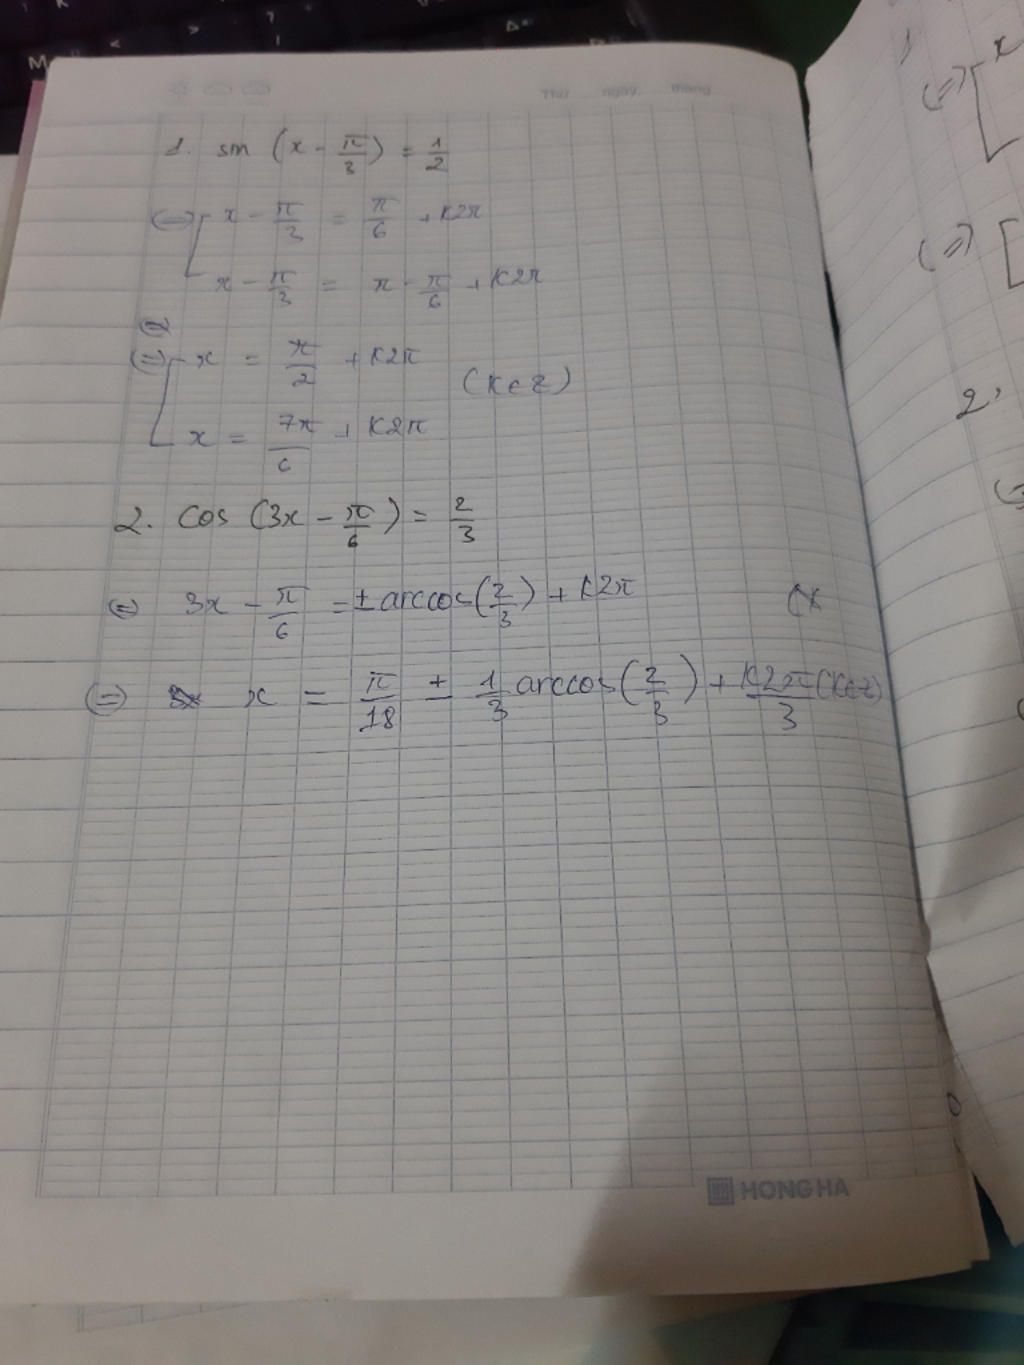 Thứ ngày tháng
1. sin (x - π/3) = 1/2
(=) x - π/3 = π/6 + K2π
x - π/3 = π - π/6 + K2π
(=) x = π/2 + K2π
(K∈Z)
x = 7π/6 + K2π
2. cos (3x - π/6) = 2/3
(=) 3x - π/6 = ± arccos(2/3) + K2π (K
(=) x = π/18 ± 1/3 arccos(2/3) + K2π/3 (K∈Z)
HONG HA
1
(=) x
(=)
2.